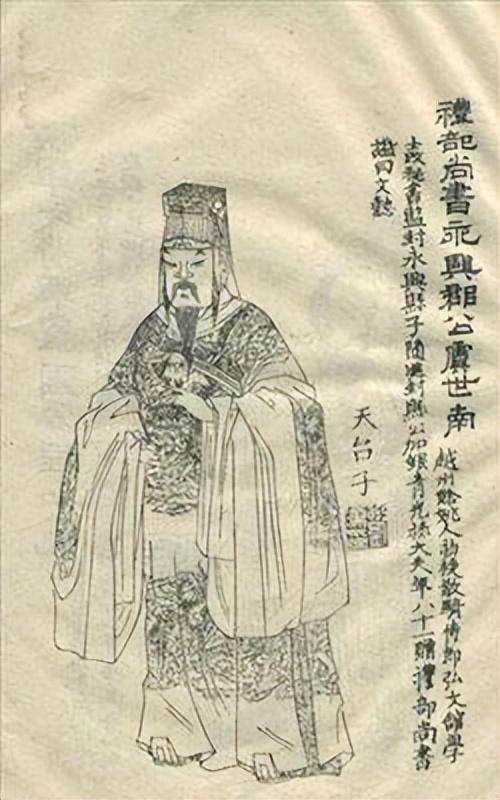 禮部尚書永興郡公虞世南 越州餘姚人初授散騎侍郎弘文館學
士改秘書監封永興縣子進封縣公加銀青光祿大夫年八十一贈禮部尚書
諡曰文懿
天台子